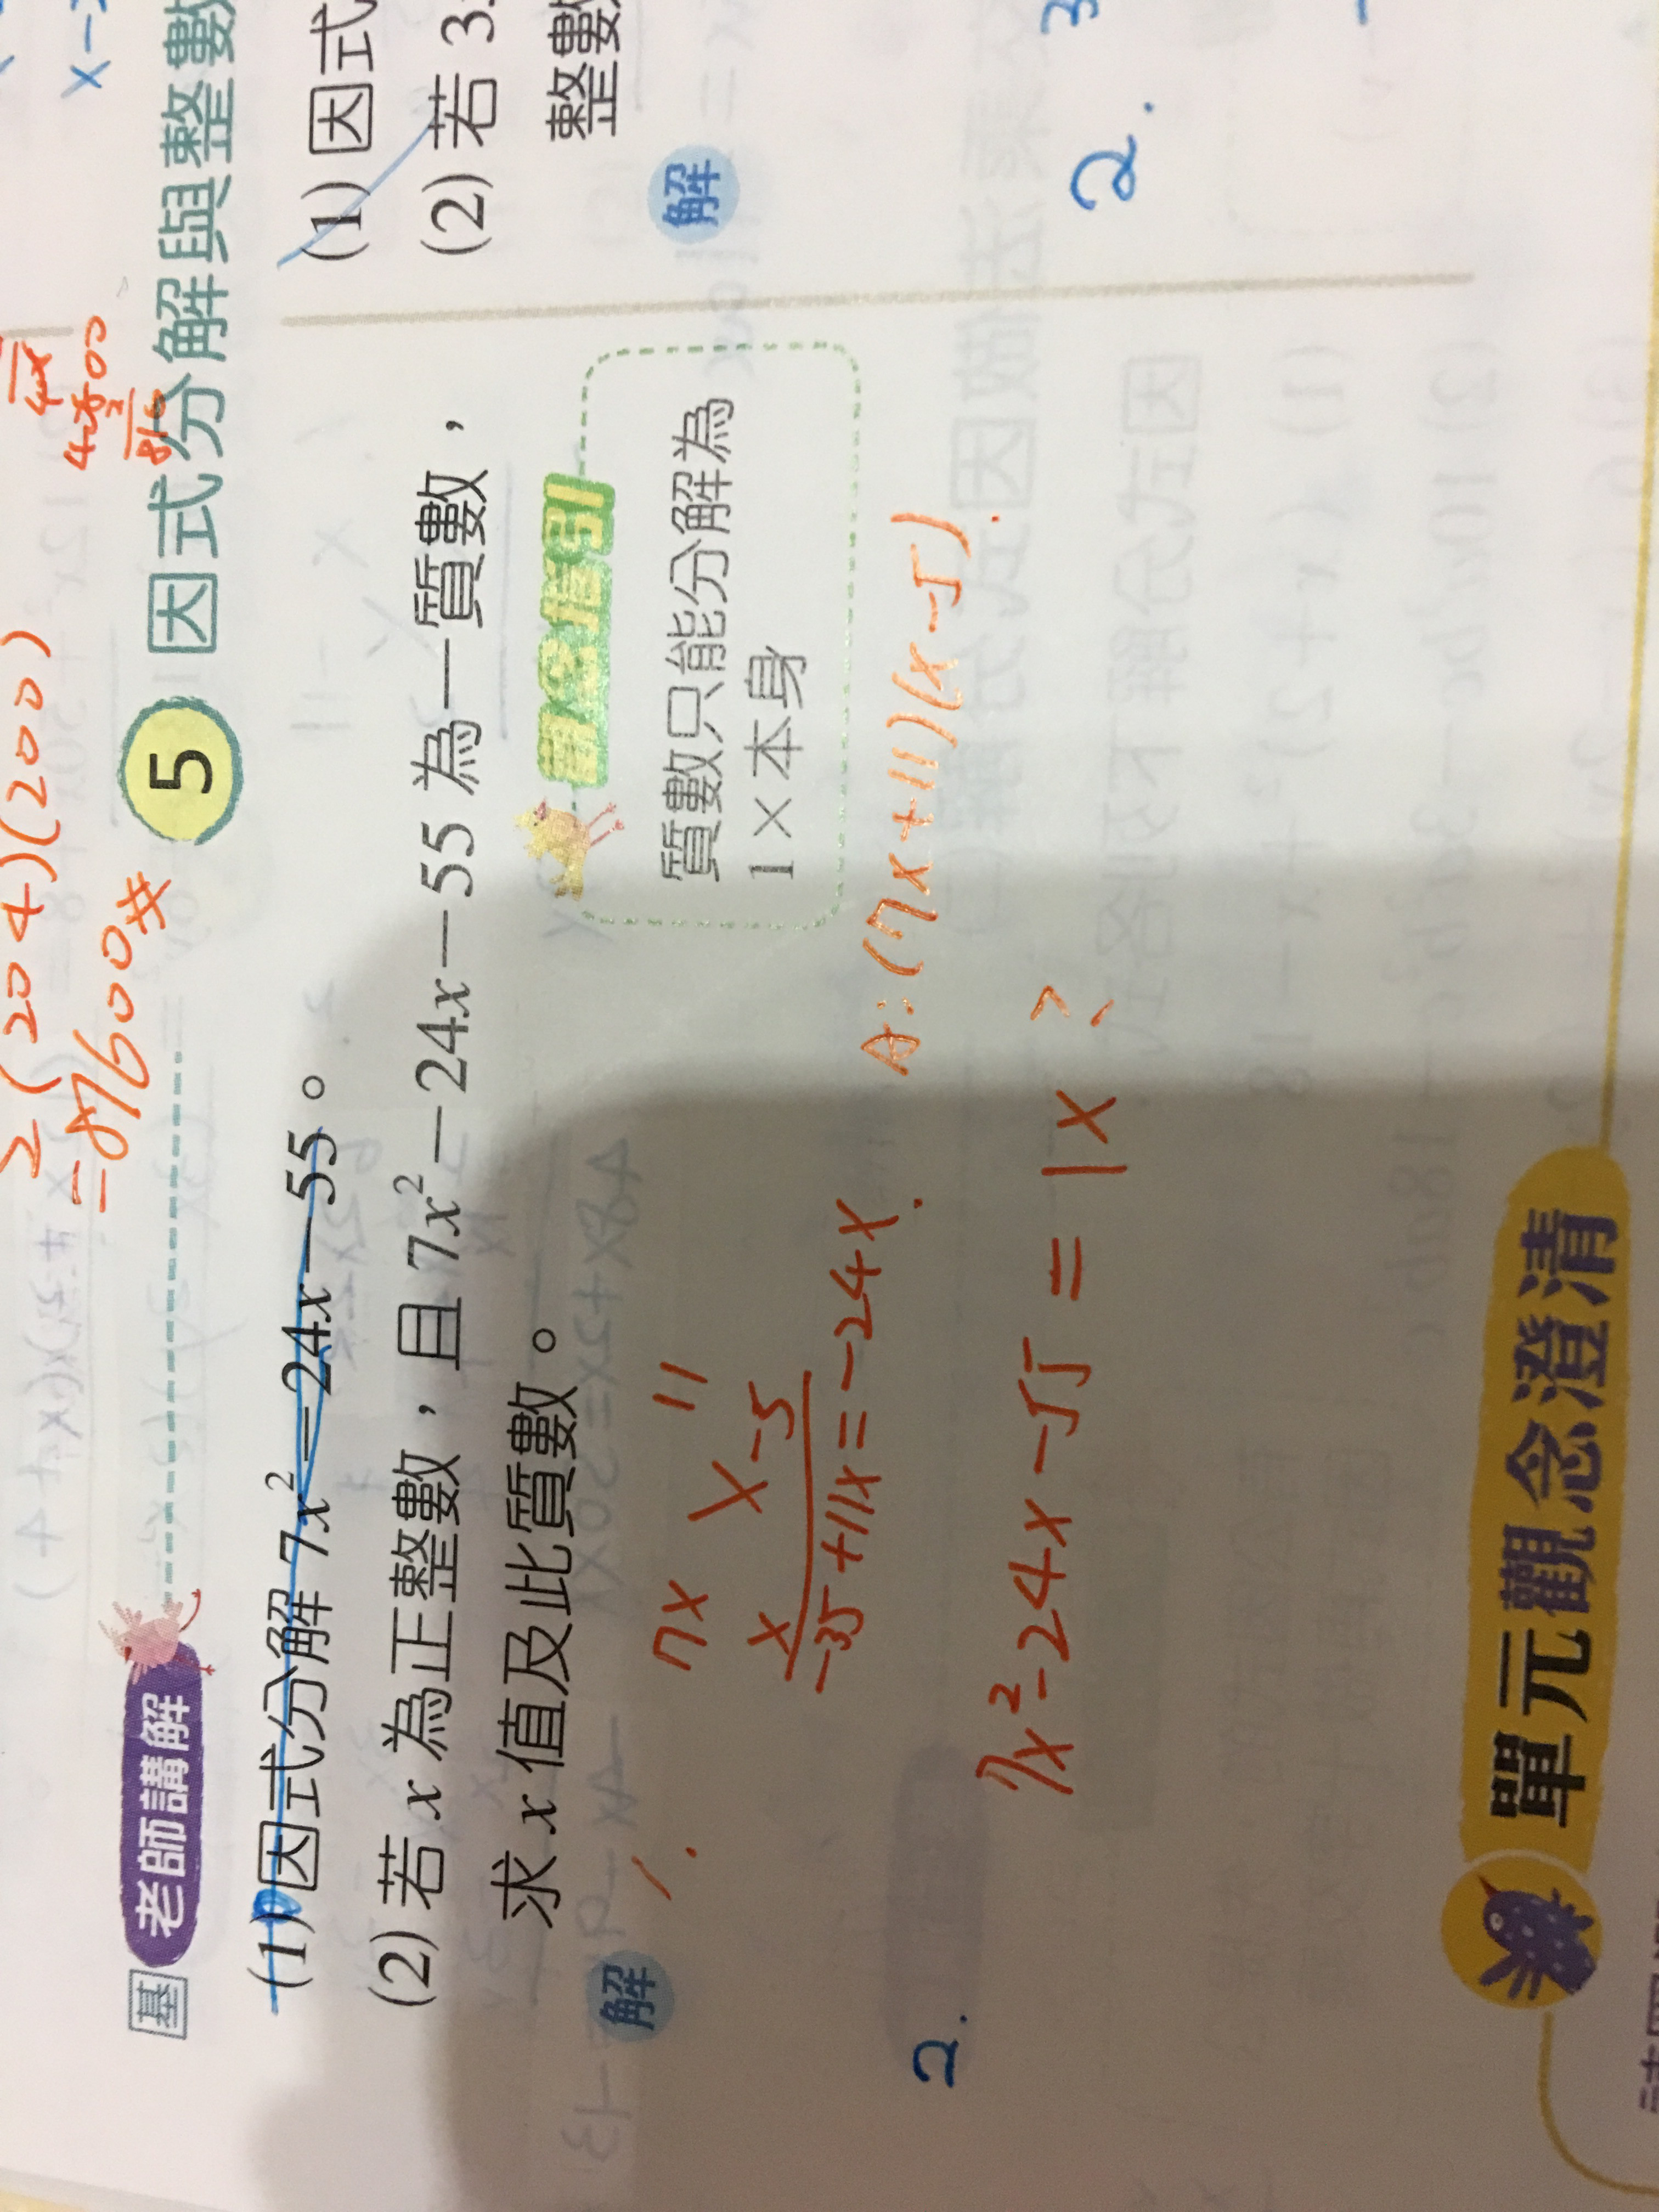 2(204)(200)
=81600#
基 老師講解
5 因式分解與整數
(1) 因式分解 7x²－24x－55。
(2) 若 x 為正整數，且 7x²－24x－55 為一質數，
求 x 值及此質數。
質數只能分解為
1×本身
解
1.
7x 11
x -5
-35+11x=-24x
A:(7x+11)(x-5)
2.
7x²-24x-55=1×?
(1) 因式
(2) 若 3
整數
解
2.
單元觀念澄清